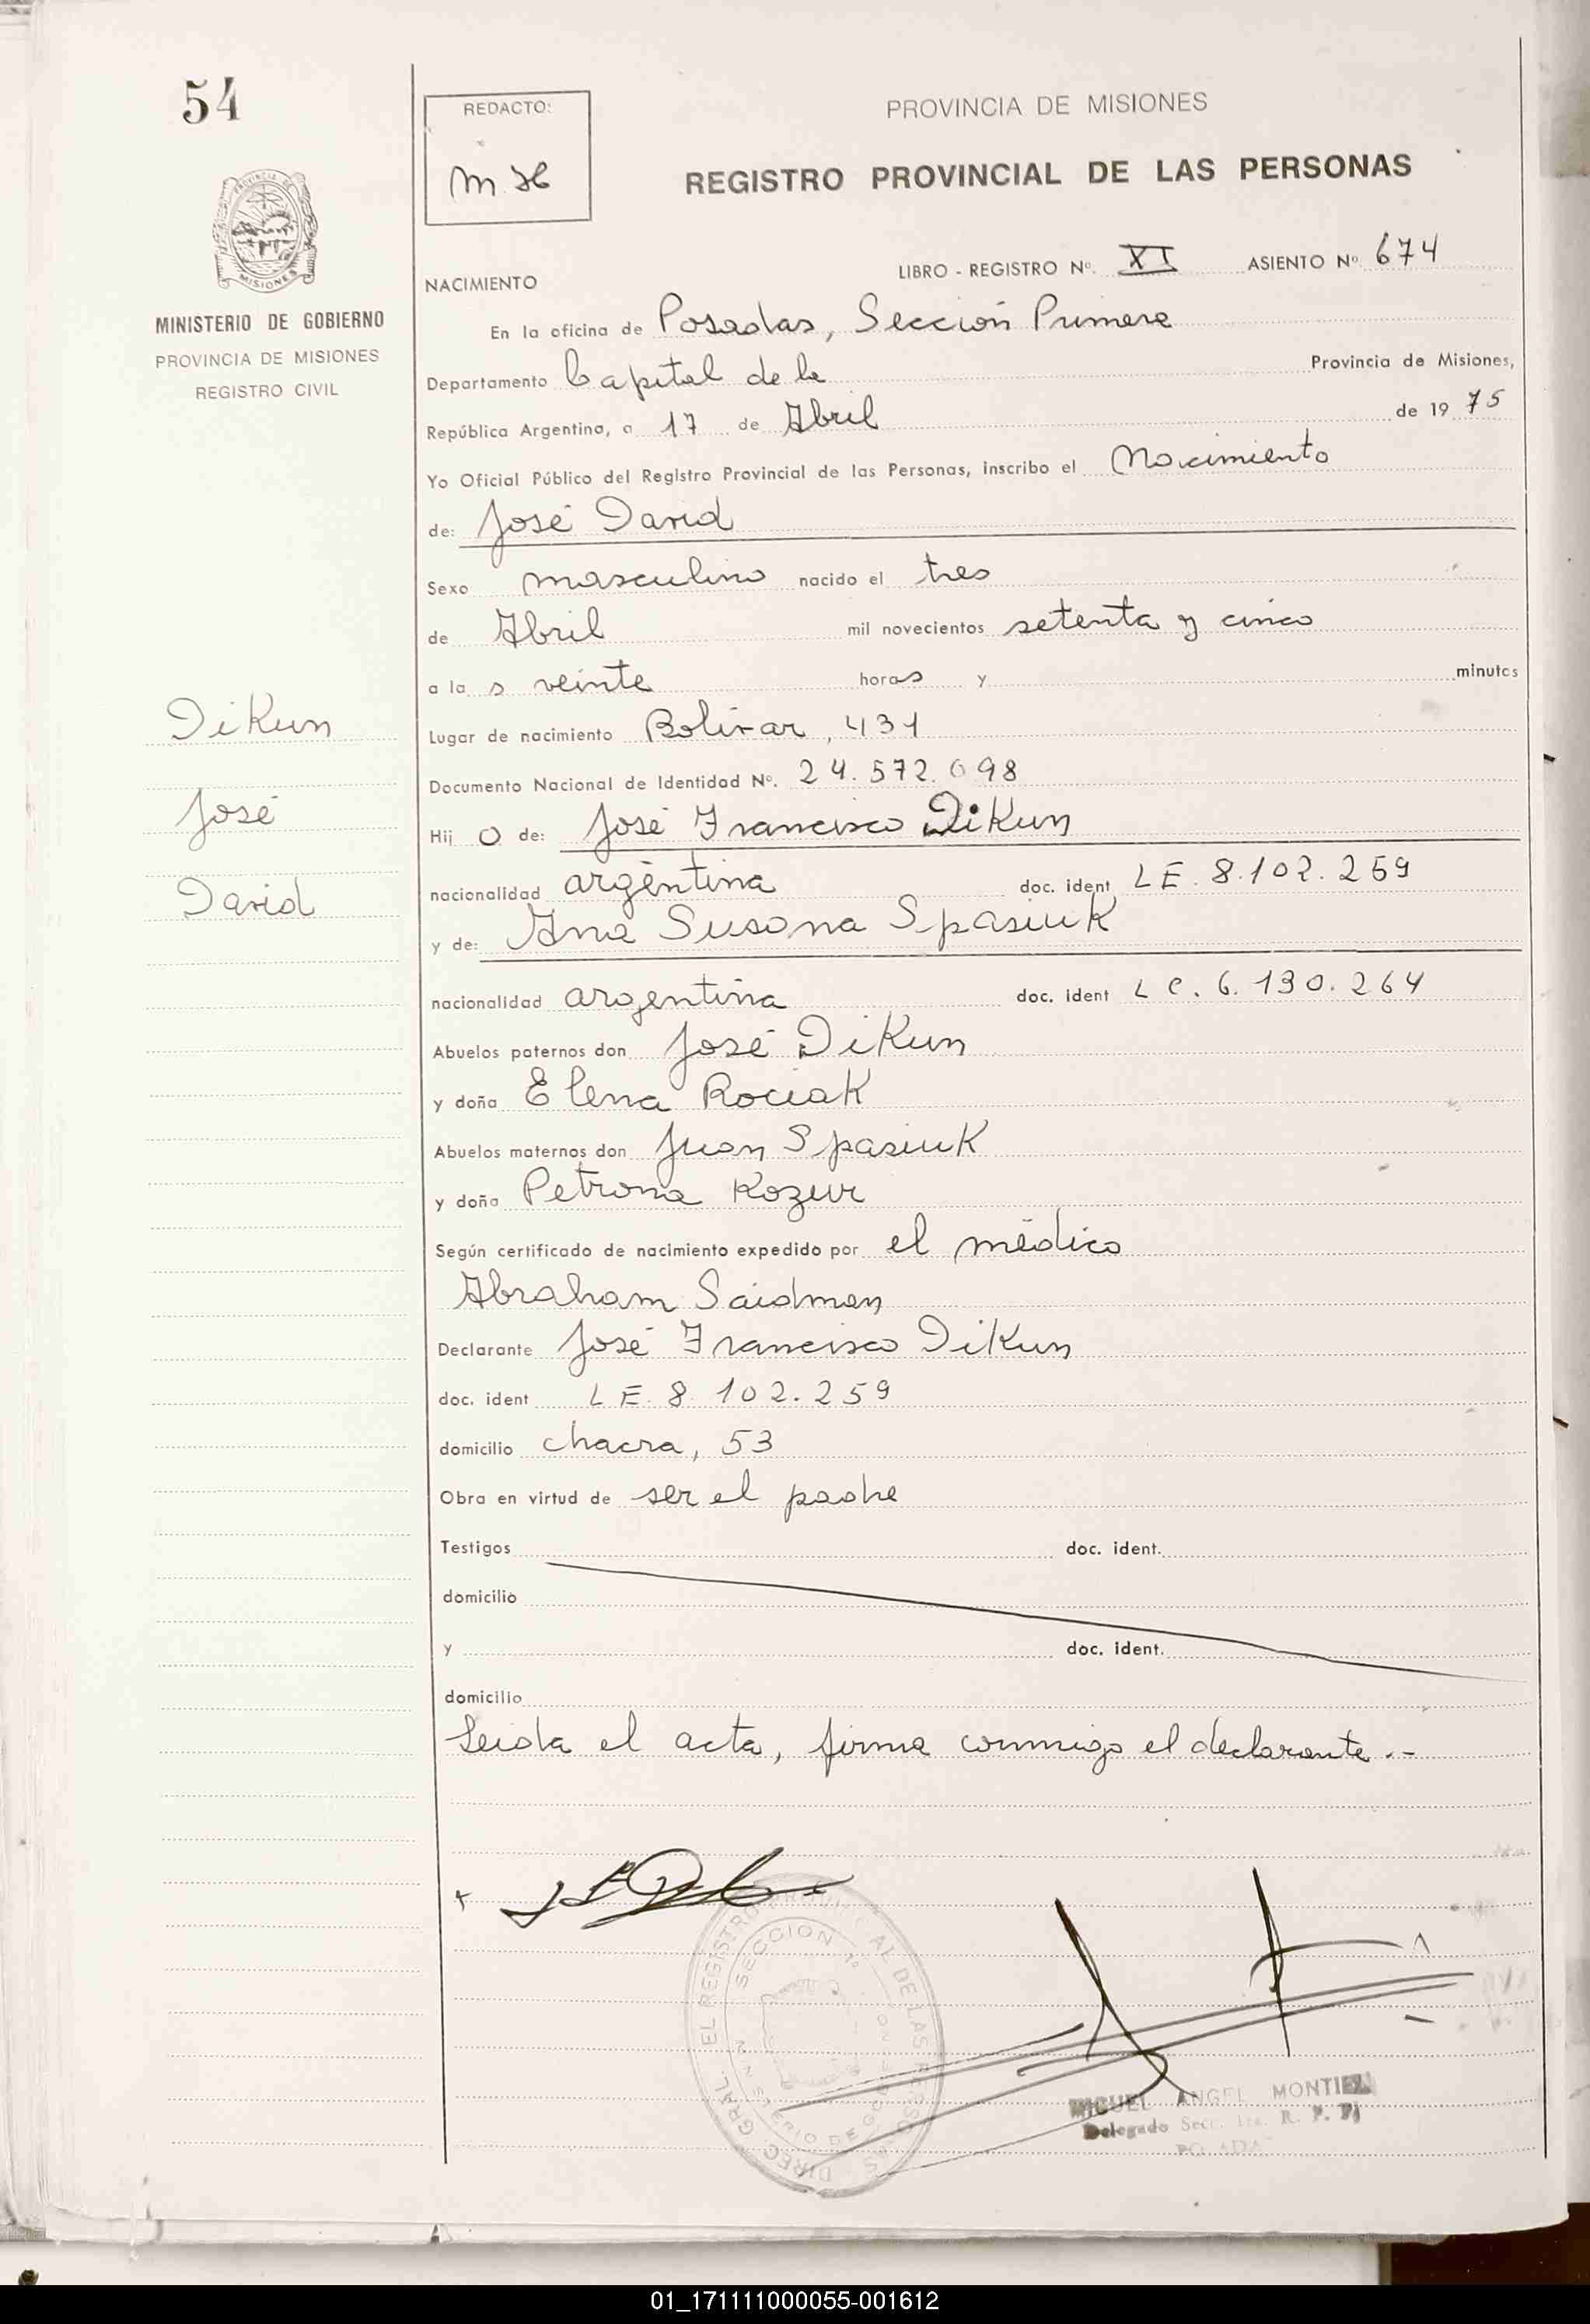 54
REDACTO:
M. H
PROVINCIA DE MISIONES
REGISTRO PROVINCIAL DE LAS PERSONAS
MISIONES
MINISTERIO DE GOBIERNO
PROVINCIA DE MISIONES
REGISTRO CIVIL
NACIMIENTO
LIBRO - REGISTRO Nº. XI ASIENTO Nº 674
En la oficina de Posadas, Sección Primera
Departamento Capital de la Provincia de Misiones,
República Argentina, a 17 de Abril de 19 75
Yo Oficial Público del Registro Provincial de las Personas, inscribo el Nacimiento
de: José David
Sexo masculino nacido el tres
de Abril mil novecientos setenta y cinco
a la s veinte horas y minutos
Dikun
José
David
Lugar de nacimiento Bolívar, 431
Documento Nacional de Identidad Nº. 24.572.098
Hij o de: José Francisco Dikun
nacionalidad argentina doc. ident LE. 8.102.259
y de: Ana Susana Spasiuk
nacionalidad argentina doc. ident LC. 6.130.264
Abuelos paternos don José Dikun
y doña Elena Rociak
Abuelos maternos don Juan Spasiuk
y doña Petrona Kozur
Según certificado de nacimiento expedido por el médico
Abraham Saidman
Declarante José Francisco Dikun
doc. ident LE. 8.102.259
domicilio chacra, 53
Obra en virtud de ser el padre
Testigos doc. ident.
domicilio
y doc. ident.
domicilio
Leida el acta, firma conmigo el declarante.-
DIREC. GRAL. EL REGISTRO PROVINCIAL DE LAS PERSONAS
SECCION 1ª
MINISTERIO DE GOBIERNO
MIGUEL ANGEL MONTIEL
Delegado Secc. 1ra. R. P. P.
POSADAS
01_171111000055-001612